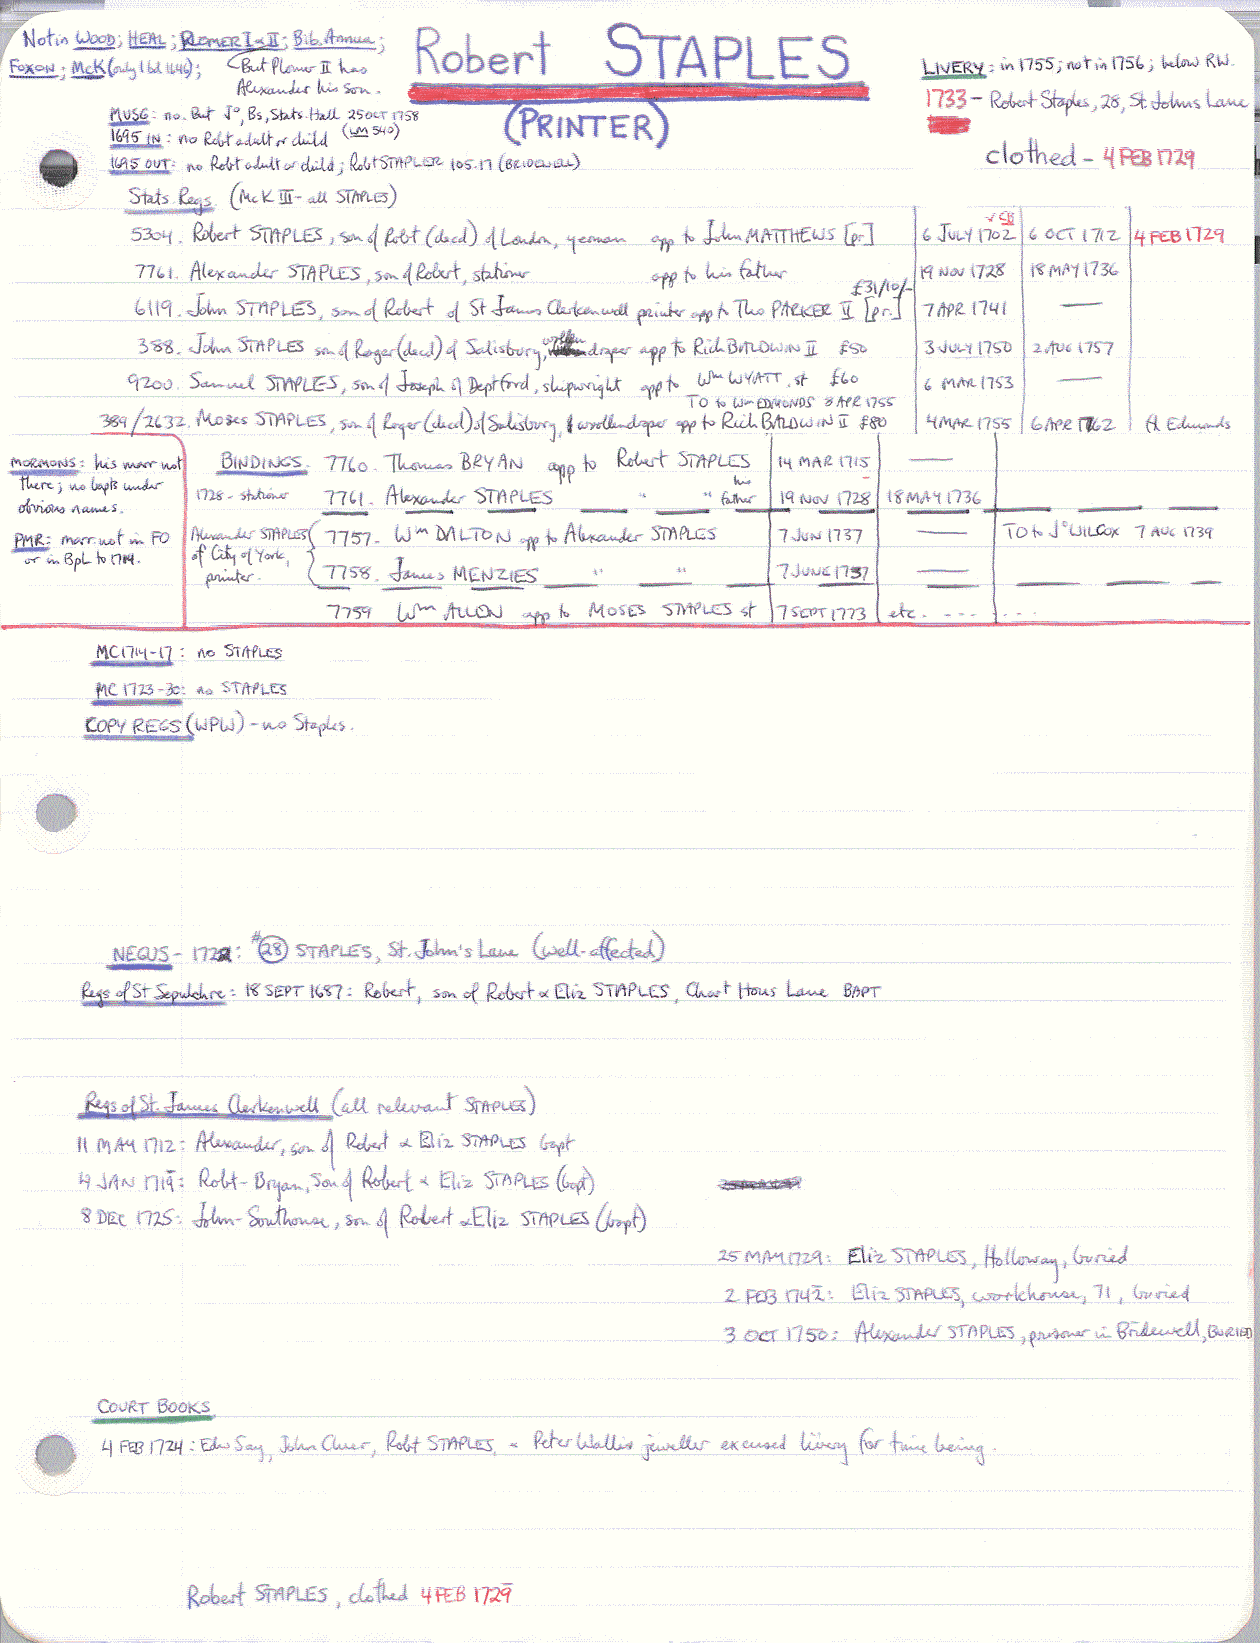 Not in WOOD; HEAL; PLOMER I & II; Bib. Annua;
FOXON; McK (only 1 bd 1646); But Plomer II has
Alexander his son.
Robert STAPLES
(PRINTER)
LIVERY: in 1755; not in 1756; below RW.
1733 - Robert Staples, 28, St. Johns Lane
clothed - 4 FEB 1729
MUSG: no. But Jo, Bs, Stats. Hall 25 OCT 1758
1695 IN: no Robt adult or child (LM 540)
1695 OUT: no Robt adult or child; Robt STAPLER 105.17 (BRIDEWELL)
Stats Regs. (McK III - all STAPLES)
5304. Robert STAPLES, son of Robt (decd) of London, yeoman app to John MATTHEWS [pr] 6 JULY 1702 6 OCT 1712 4 FEB 1729
7761. Alexander STAPLES, son of Robert, stationer app to his father 19 NOV 1728 18 MAY 1736
£31/10/-
6119. John STAPLES, son of Robert of St James Clerkenwell printer app to Tho PARKER II [pr.] 7 APR 1741 —
388. John STAPLES son of Roger (decd) of Salisbury, woollen draper app to Rich BALDWIN II £50 3 JULY 1750 2 AUG 1757
9200. Samuel STAPLES, son of Joseph of Deptford, shipwright app to Wm WYATT, st £60 6 MAR 1753 —
TO to Wm EDMONDS 8 APR 1755
389/2632. Moses STAPLES, son of Roger (decd) of Salisbury, woollendraper app to Rich BALDWIN II £80 4 MAR 1755 6 APR 1762 ft Edmunds
MORMONS: his marr not
there; no bapts under
obvious names.
PMR: marr. not in FO
or in BpL to 1714.
BINDINGS. 7760. Thomas BRYAN app to Robert STAPLES 14 MAR 1715 —
1728 - stationer 7761. Alexander STAPLES " " his father 19 NOV 1728 18 MAY 1736
Alexander STAPLES
of City of York,
printer.
7757. Wm DALTON app to Alexander STAPLES 7 JUN 1737 — TO to Jo WILCOX 7 AUG 1739
7758. James MENZIES " " 7 JUNE 1737 —
7759 Wm ALLEN app to MOSES STAPLES st 7 SEPT 1773 etc. - - - - - - - -
MC 1714-17: no STAPLES
MC 1723-30: no STAPLES
COPY REGS (WPW) - no Staples.
NEGUS - 1722: #28 STAPLES, St. John's Lane (well-affected)
Regs of St Sepulchre: 18 SEPT 1687: Robert, son of Robert & Eliz STAPLES, Chart Hous Lane BAPT
Regs of St. James Clerkenwell (all relevant STAPLES)
11 MAY 1712: Alexander, son of Robert & Eliz STAPLES bapt
4 JAN 1719: Robt-Bryan, son of Robert & Eliz STAPLES (bapt)
8 DEC 1725: John-Southouse, son of Robert & Eliz STAPLES (bapt)
25 MAY 1729: Eliz STAPLES, Holloway, buried
2 FEB 1742: Eliz STAPLES, workhouse, 71, buried
3 OCT 1750: Alexander STAPLES, prisoner in Bridewell, BURIED
COURT BOOKS
4 FEB 1724: Edw Say, John Cluer, Robt STAPLES, & Peter Wallis jeweller excused livery for time being.
Robert STAPLES, clothed 4 FEB 1729